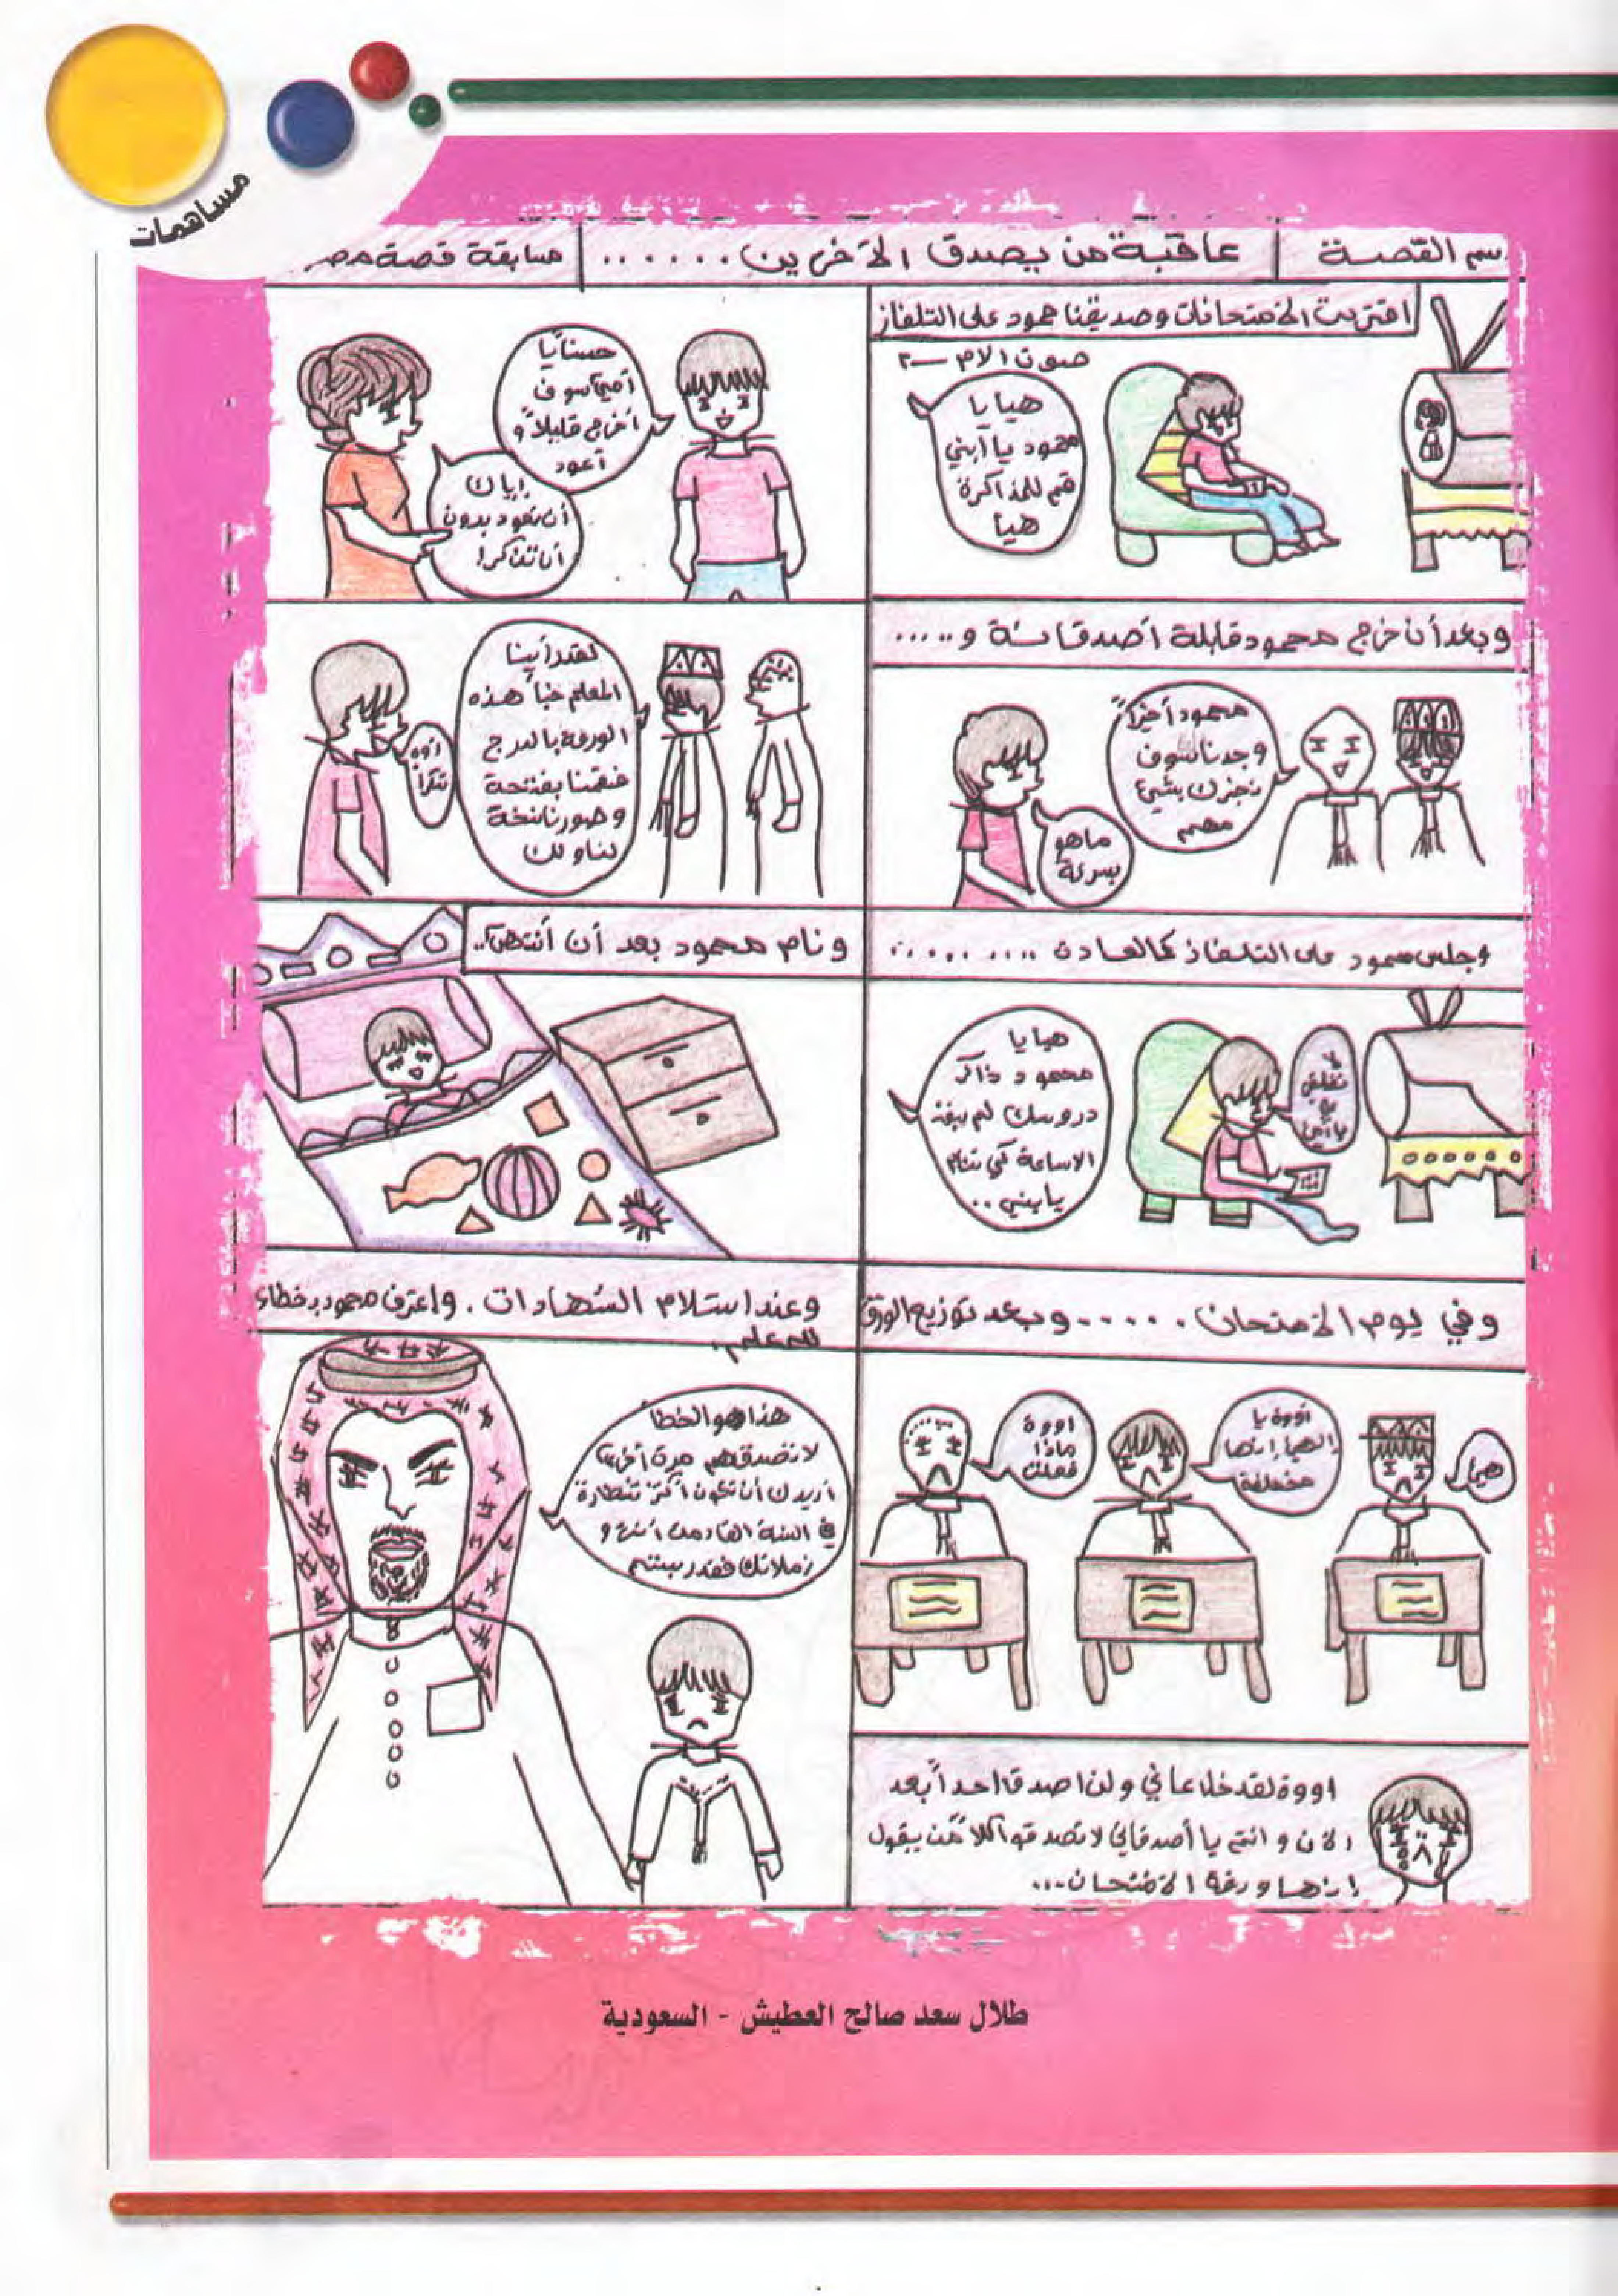 مساهمات
سم القصة
عاقبة من يصدق الآخرين......
مسابقة قصة مصر
اقتربت الامتحانات وصديقنا محمود على التلفاز
صوت الأم
هيا يا
محمود يا ابني
قم للمذاكرة
هيا
حسناً يا
أمي سوف
أخرج قليلاً و
أعود
إياك
أن تعود بدون
أن تذاكر!
وبعد أن خرج محمود قابلة أصدقائة و.....
محمود أخيراً
وجدنا سوف
نخبرك بشيء
مهم
ماهو
بسرعة
لقد رأينا
المعلم خبأ هذه
الورقة بالدرج
فقمنا بفتحة
وصورنا نسخة
لنا و لك
اوه
شكراً
وجلس محمود على التلفاز كالعادة ..........
هيا يا
محمود ذاكر
دروسك لم يبقى
الا ساعة كي تنام
يا بني ..
لا
تقلقي
يا أمي
ونام محمود بعد أن أنتهى..
وفي يوم الامتحان......وبعد توزيع الورق
هيا
أووة يا
إلهي إنها
مختلفة
اووة
ماذا
فعلت
اووة لقد خدعاني ولن اصدق احداً بعد
الآن و انتم يا أصدقائي لا تصدقوا كلا من يقول
إنها ورقة الامتحان...
وعند استلام الشهادات . واعترف محمود بخطاء
للمعلم.
هذا هو الخطأ
لا تصدقهم مرة أخرى
أريدك أن تكون أكثر شطارة
في السنة القادمة أنت و
زملائك فقد رسبتم
طلال سعد صالح العطيش - السعودية